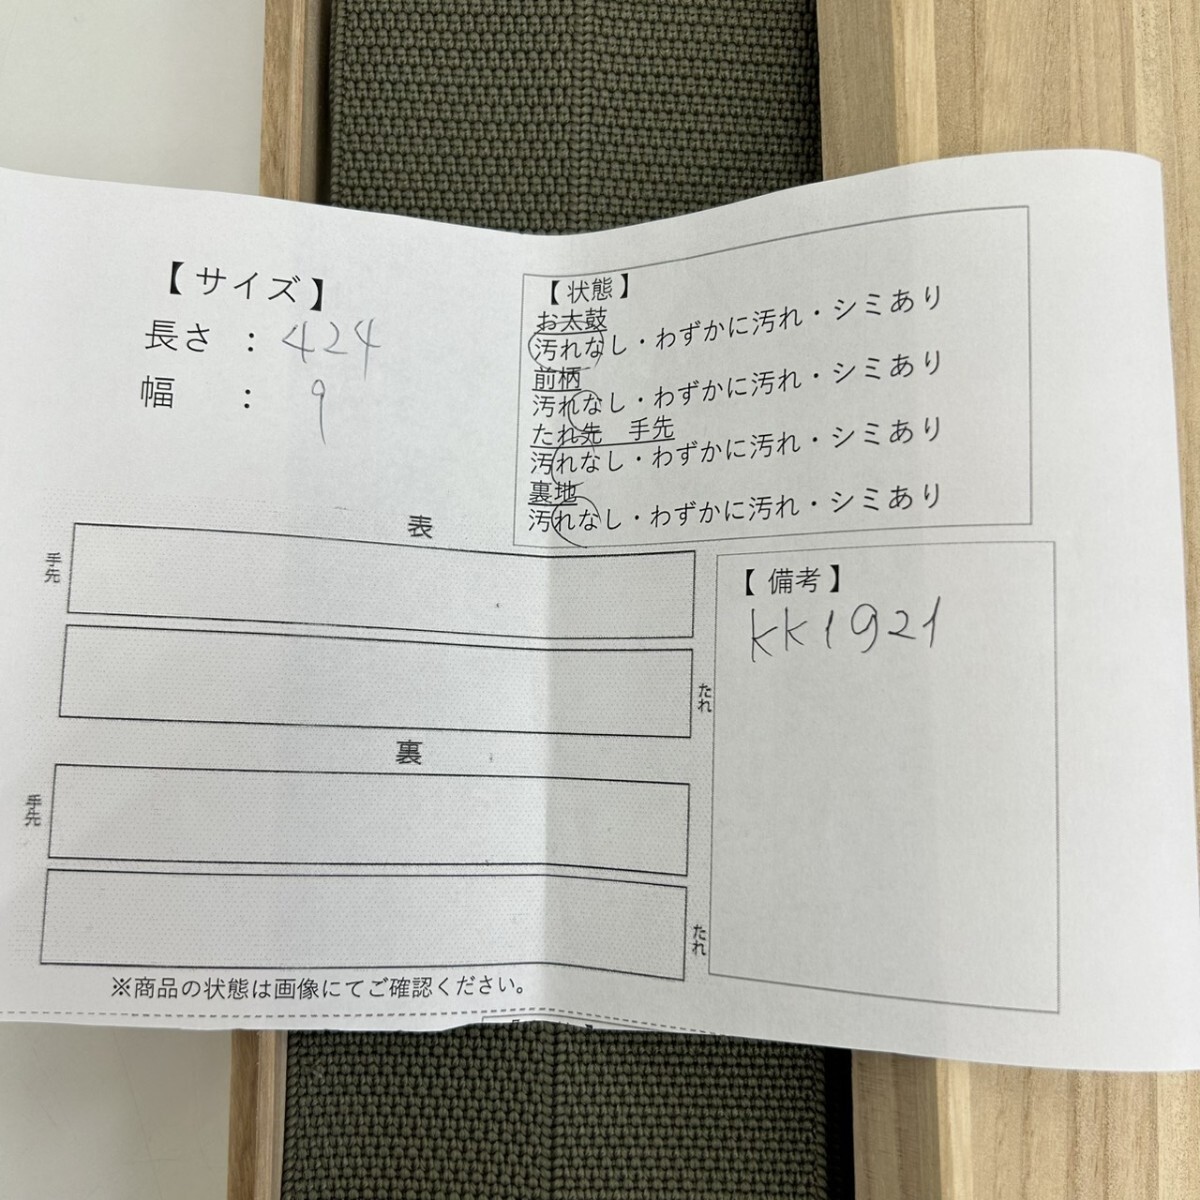 【サイズ】
長さ：424
幅：9
【状態】
お太鼓
汚れなし・わずかに汚れ・シミあり
前柄
汚れなし・わずかに汚れ・シミあり
たれ先　手先
汚れなし・わずかに汚れ・シミあり
裏地
汚れなし・わずかに汚れ・シミあり
表
手先
たれ
裏
手先
たれ
【備考】
KK1921
※商品の状態は画像にてご確認ください。